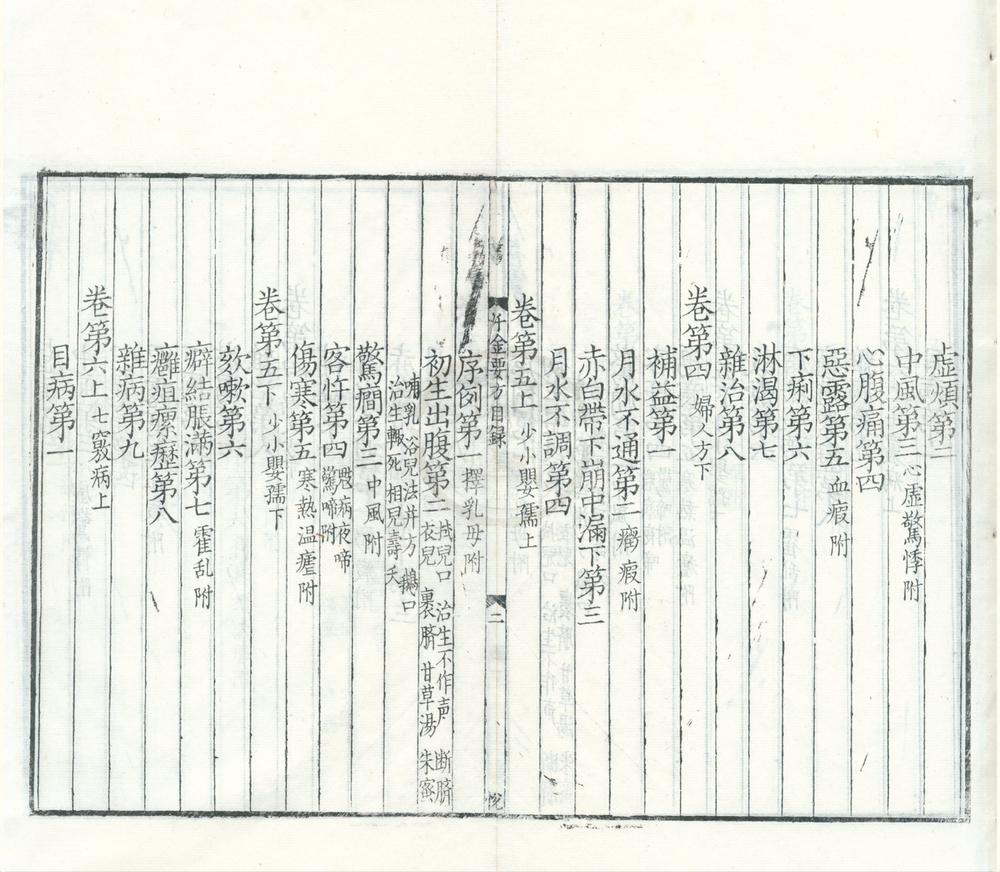 虛煩第二
中風第三 心虛驚悸附
心腹痛第四
惡露第五 血瘕附
下痢第六
淋渴第七
雜治第八
卷第四 婦人方下
補益第一
月水不通第二 癥瘕附
赤白帶下崩中漏下第三
月水不調第四
卷第五上 少小嬰孺上
千金要方目錄 二
序例第一 擇乳母附
初生出腹第二 拭兒口 治生不作声 断臍
衣兒 裹臍 甘草湯 朱蜜
哺乳 浴兒法并方 鵝口
治生輒死 相兒壽夭
驚癇第三 中風附
客忤第四 魃病夜啼
驚啼附
傷寒第五 寒熱温瘧附
卷第五下 少小嬰孺下
欬嗽第六
癖結脹滿第七 霍乱附
癰疽瘰癧第八
雜病第九
卷第六上 七竅病上
目病第一